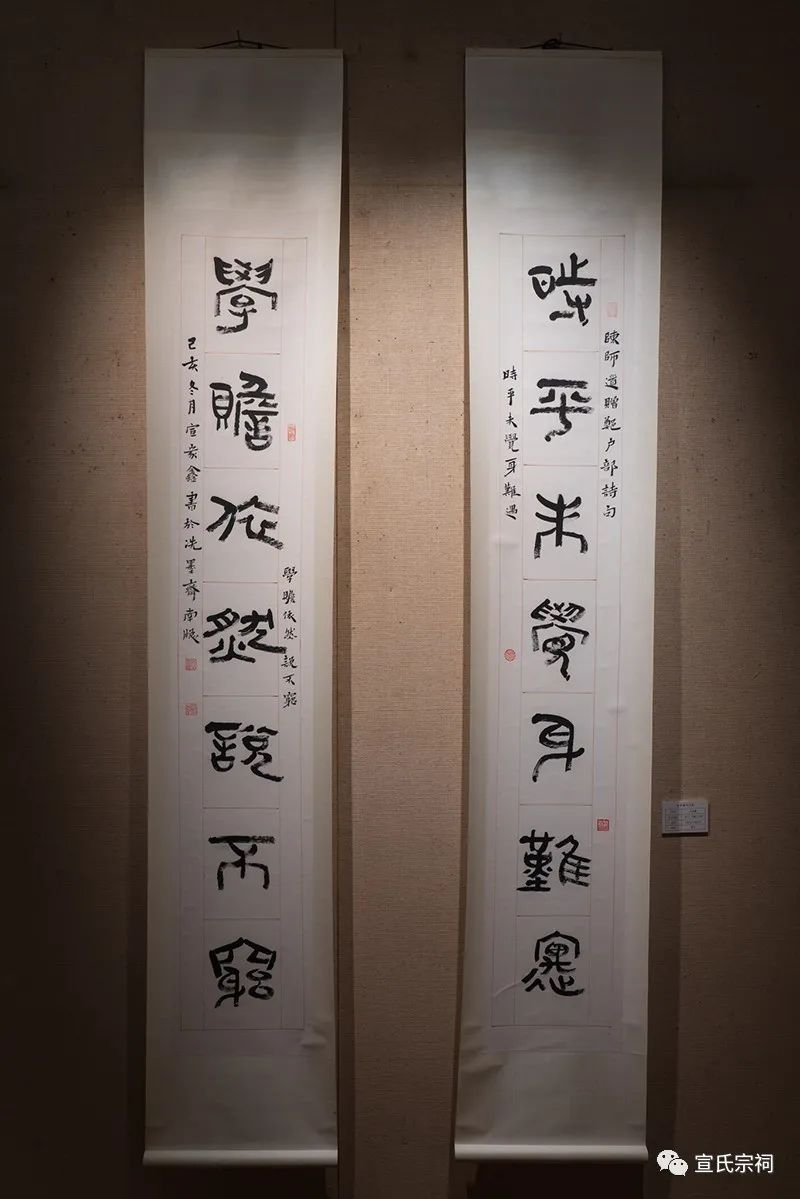 陳師道贈户部詩句
時平未覺身難遇
時平未覺身難遇
學贍依然説不窮
學贍依然説不窮
己亥冬月宣家鑫書於洗墨齋南
宣氏宗祠